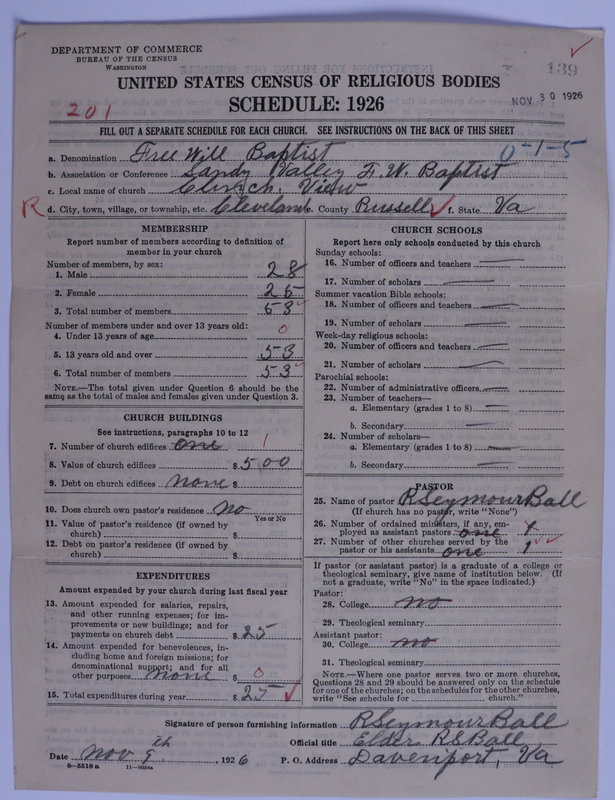 DEPARTMENT OF COMMERCE
BUREAU OF THE CENSUS
WASHINGTON
139
UNITED STATES CENSUS OF RELIGIOUS BODIES
SCHEDULE: 1926
NOV 30 1926
201
FILL OUT A SEPARATE SCHEDULE FOR EACH CHURCH. SEE INSTRUCTIONS ON THE BACK OF THIS SHEET
a. Denomination Free Will Baptist 0-1-5
b. Association or Conference Sandy Valley F. W. Baptist
c. Local name of church Clinch View
R d. City, town, village, or township, etc. Cleveland County Russell f. State Va
MEMBERSHIP
Report number of members according to definition of
member in your church
Number of members, by sex:
1. Male 28
2. Female 25
3. Total number of members 53
Number of members under and over 13 years old:
4. Under 13 years of age 0
5. 13 years old and over 53
6. Total number of members 53
NOTE.—The total given under Question 6 should be the
same as the total of males and females given under Question 3.
CHURCH BUILDINGS
See instructions, paragraphs 10 to 12
7. Number of church edifices one 1
8. Value of church edifices $500
9. Debt on church edifices none $
10. Does church own pastor's residence No
Yes or No
11. Value of pastor's residence (if owned by
church) $
12. Debt on pastor's residence (if owned by
church) $
EXPENDITURES
Amount expended by your church during last fiscal year
13. Amount expended for salaries, repairs,
and other running expenses; for im-
provements or new buildings; and for
payments on church debt $25
14. Amount expended for benevolences, in-
cluding home and foreign missions; for
denominational support; and for all
other purposes none $0
15. Total expenditures during year $25
CHURCH SCHOOLS
Report here only schools conducted by this church
Sunday schools:
16. Number of officers and teachers
17. Number of scholars
Summer vacation Bible schools:
18. Number of officers and teachers
19. Number of scholars
Week-day religious schools:
20. Number of officers and teachers
21. Number of scholars
Parochial schools:
22. Number of administrative officers
23. Number of teachers—
a. Elementary (grades 1 to 8)
b. Secondary
24. Number of scholars—
a. Elementary (grades 1 to 8)
b. Secondary
PASTOR
25. Name of pastor R Seymour Ball
(If church has no pastor, write "None")
26. Number of ordained ministers, if any, em-
ployed as assistant pastors one 1
27. Number of other churches served by the
pastor or his assistants one 1
If pastor (or assistant pastor) is a graduate of a college or
theological seminary, give name of institution below. (If
not a graduate, write "No" in the space indicated.)
Pastor:
28. College no
29. Theological seminary
Assistant pastor:
30. College no
31. Theological seminary
NOTE.—Where one pastor serves two or more churches,
Questions 28 and 29 should be answered only on the schedule
for one of the churches; on the schedules for the other churches,
write "See schedule for church."
Signature of person furnishing information R Seymour Ball
Official title Elder R S Ball
Date Nov 9th, 1926 P. O. Address Davenport, Va
8-5518a 11-9054a